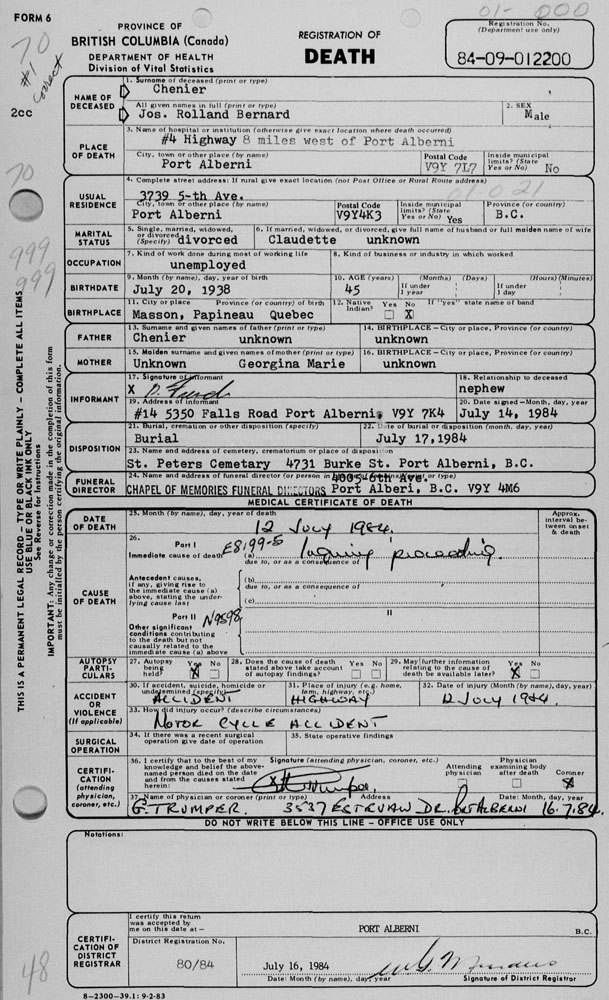 FORM 6
PROVINCE OF
BRITISH COLUMBIA (Canada)
DEPARTMENT OF HEALTH
Division of Vital Statistics
REGISTRATION OF
DEATH
01- 000
Registration No.
(Department use only)
84-09-012200
70
#1
correct
2cc
70
999
999
48
THIS IS A PERMANENT LEGAL RECORD - TYPE OR WRITE PLAINLY - COMPLETE ALL ITEMS
USE BLUE OR BLACK INK ONLY
See Reverse for Instructions
IMPORTANT: Any change or correction made in the completion of this form
must be initialled by the person certifying the original information.
NAME OF
DECEASED
1. Surname of deceased (print or type)
Chenier
All given names in full (print or type)
Jos. Rolland Bernard
2. SEX
Male
PLACE
OF DEATH
3. Name of hospital or institution (otherwise give exact location where death occurred)
#4 Highway 8 miles west of Port Alberni
City, town or other place (by name)
Port Alberni
Postal Code
V9Y 7L7
Inside municipal
limits? (State
Yes or No)
No
USUAL
RESIDENCE
4. Complete street address: If rural give exact location (not Post Office or Rural Route address)
3739 5-th Ave.
City, town or other place (by name)
Port Alberni
Postal Code
V9Y4K3
Inside municipal
limits? (State
Yes or No)
Yes
Province (or country)
B.C.
MARITAL
STATUS
5. Single, married, widowed,
or divorced
(Specify)
divorced
6. If married, widowed, or divorced, give full name of husband or full maiden name of wife
Claudette unknown
OCCUPATION
7. Kind of work done during most of working life
unemployed
8. Kind of business or industry in which worked
BIRTHDATE
9. Month (by name), day, year of birth
July 20, 1938
10. AGE (years)
45
(Months) (Days)
If under
1 year
(Hours) (Minutes)
If under
1 day
BIRTHPLACE
11. City or place Province (or country) of birth
Masson, Papineau Quebec
12. Native
Indian?
Yes No
X
If "yes" state name of band
FATHER
13. Surname and given names of father (print or type)
Chenier unknown
14. BIRTHPLACE - City or place, Province (or country)
unknown
MOTHER
15. Maiden surname and given names of mother (print or type)
Unknown Georgina Marie
16. BIRTHPLACE - City or place, Province (or country)
unknown
INFORMANT
17. Signature of informant
X
18. Relationship to deceased
nephew
19. Address of informant
#14 5350 Falls Road Port Alberni, V9Y 7K4
20. Date signed - Month, day, year
July 14, 1984
DISPOSITION
21. Burial, cremation or other disposition (specify)
Burial
22. Date of burial or disposition (month, day, year)
July 17,1984
23. Name and address of cemetery, crematorium or place of disposition
St. Peters Cemetary 4731 Burke St. Port Alberni, B.C.
FUNERAL
DIRECTOR
24. Name and address of funeral director (or person in
or type)
4005-6th Ave.
CHAPEL OF MEMORIES FUNERAL DIRECTORS Port Alberi, B.C. V9Y 4M6
MEDICAL CERTIFICATE OF DEATH
DATE
OF DEATH
25. Month (by name), day, year of death
12 July 1984.
Approx.
interval be-
tween onset
& death
CAUSE
OF DEATH
26.
Part I
Immediate cause of death
E8199-5
(a) Inquiry proceeding.
due to, or as a consequence of
Antecedent causes,
if any, giving rise to
the immediate cause (a)
above, stating the under-
lying cause last
(b)
due to, or as a consequence of
(c)
Part II
N9598
II
Other significant
conditions contributing
to the death but not
causally related to the
immediate cause (a) above
AUTOPSY
PARTI-
CULARS
27. Autopsy
being
held?
Yes No
X
28. Does the cause of death
stated above take account
of autopsy findings?
Yes No
29. May further information
relating to the cause of
death be available later?
Yes No
X
ACCIDENT
OR
VIOLENCE
(If applicable)
30. If accident, suicide, homicide or
undetermined (specify)
ACCIDENT
31. Place of injury (e.g. home,
farm, highway, etc.)
HIGHWAY
32. Date of injury (Month (by name), day, year)
12 July 1984.
33. How did injury occur? (describe circumstances)
MOTOR CYCLE ACCIDENT
SURGICAL
OPERATION
34. If there was a recent surgical
operation give date of operation
35. State operative findings
CERTIFI-
CATION
(attending
physician,
coroner, etc.)
36. I certify that to the best of my
knowledge and belief the above-
named person died on the date
and from the causes stated
herein:
Signature (attending physician, coroner, etc.)
X
Attending
physician
Physician
examining body
after death
Coroner
X
37. Name of physician or coroner (print or type)
G. TRUMPER.
Address
3537 ESTEVAN DR. PRT ALBERNI
Date: Month, day, year
16.7.84.
DO NOT WRITE BELOW THIS LINE - OFFICE USE ONLY
Notations:
CERTIFI-
CATION OF
DISTRICT
REGISTRAR
I certify this return
was accepted by
me on this date at -
PORT ALBERNI
B.C.
District Registration No.
80/84
July 16, 1984
Date: Month (by name), day, year
Signature of District Registrar
8-2300-39.1: 9-2-83